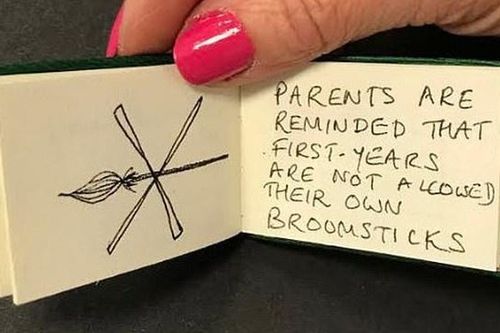 PARENTS ARE
REMINDED THAT
FIRST-YEARS
ARE NOT ALLOWED
THEIR OWN
BROOMSTICKS